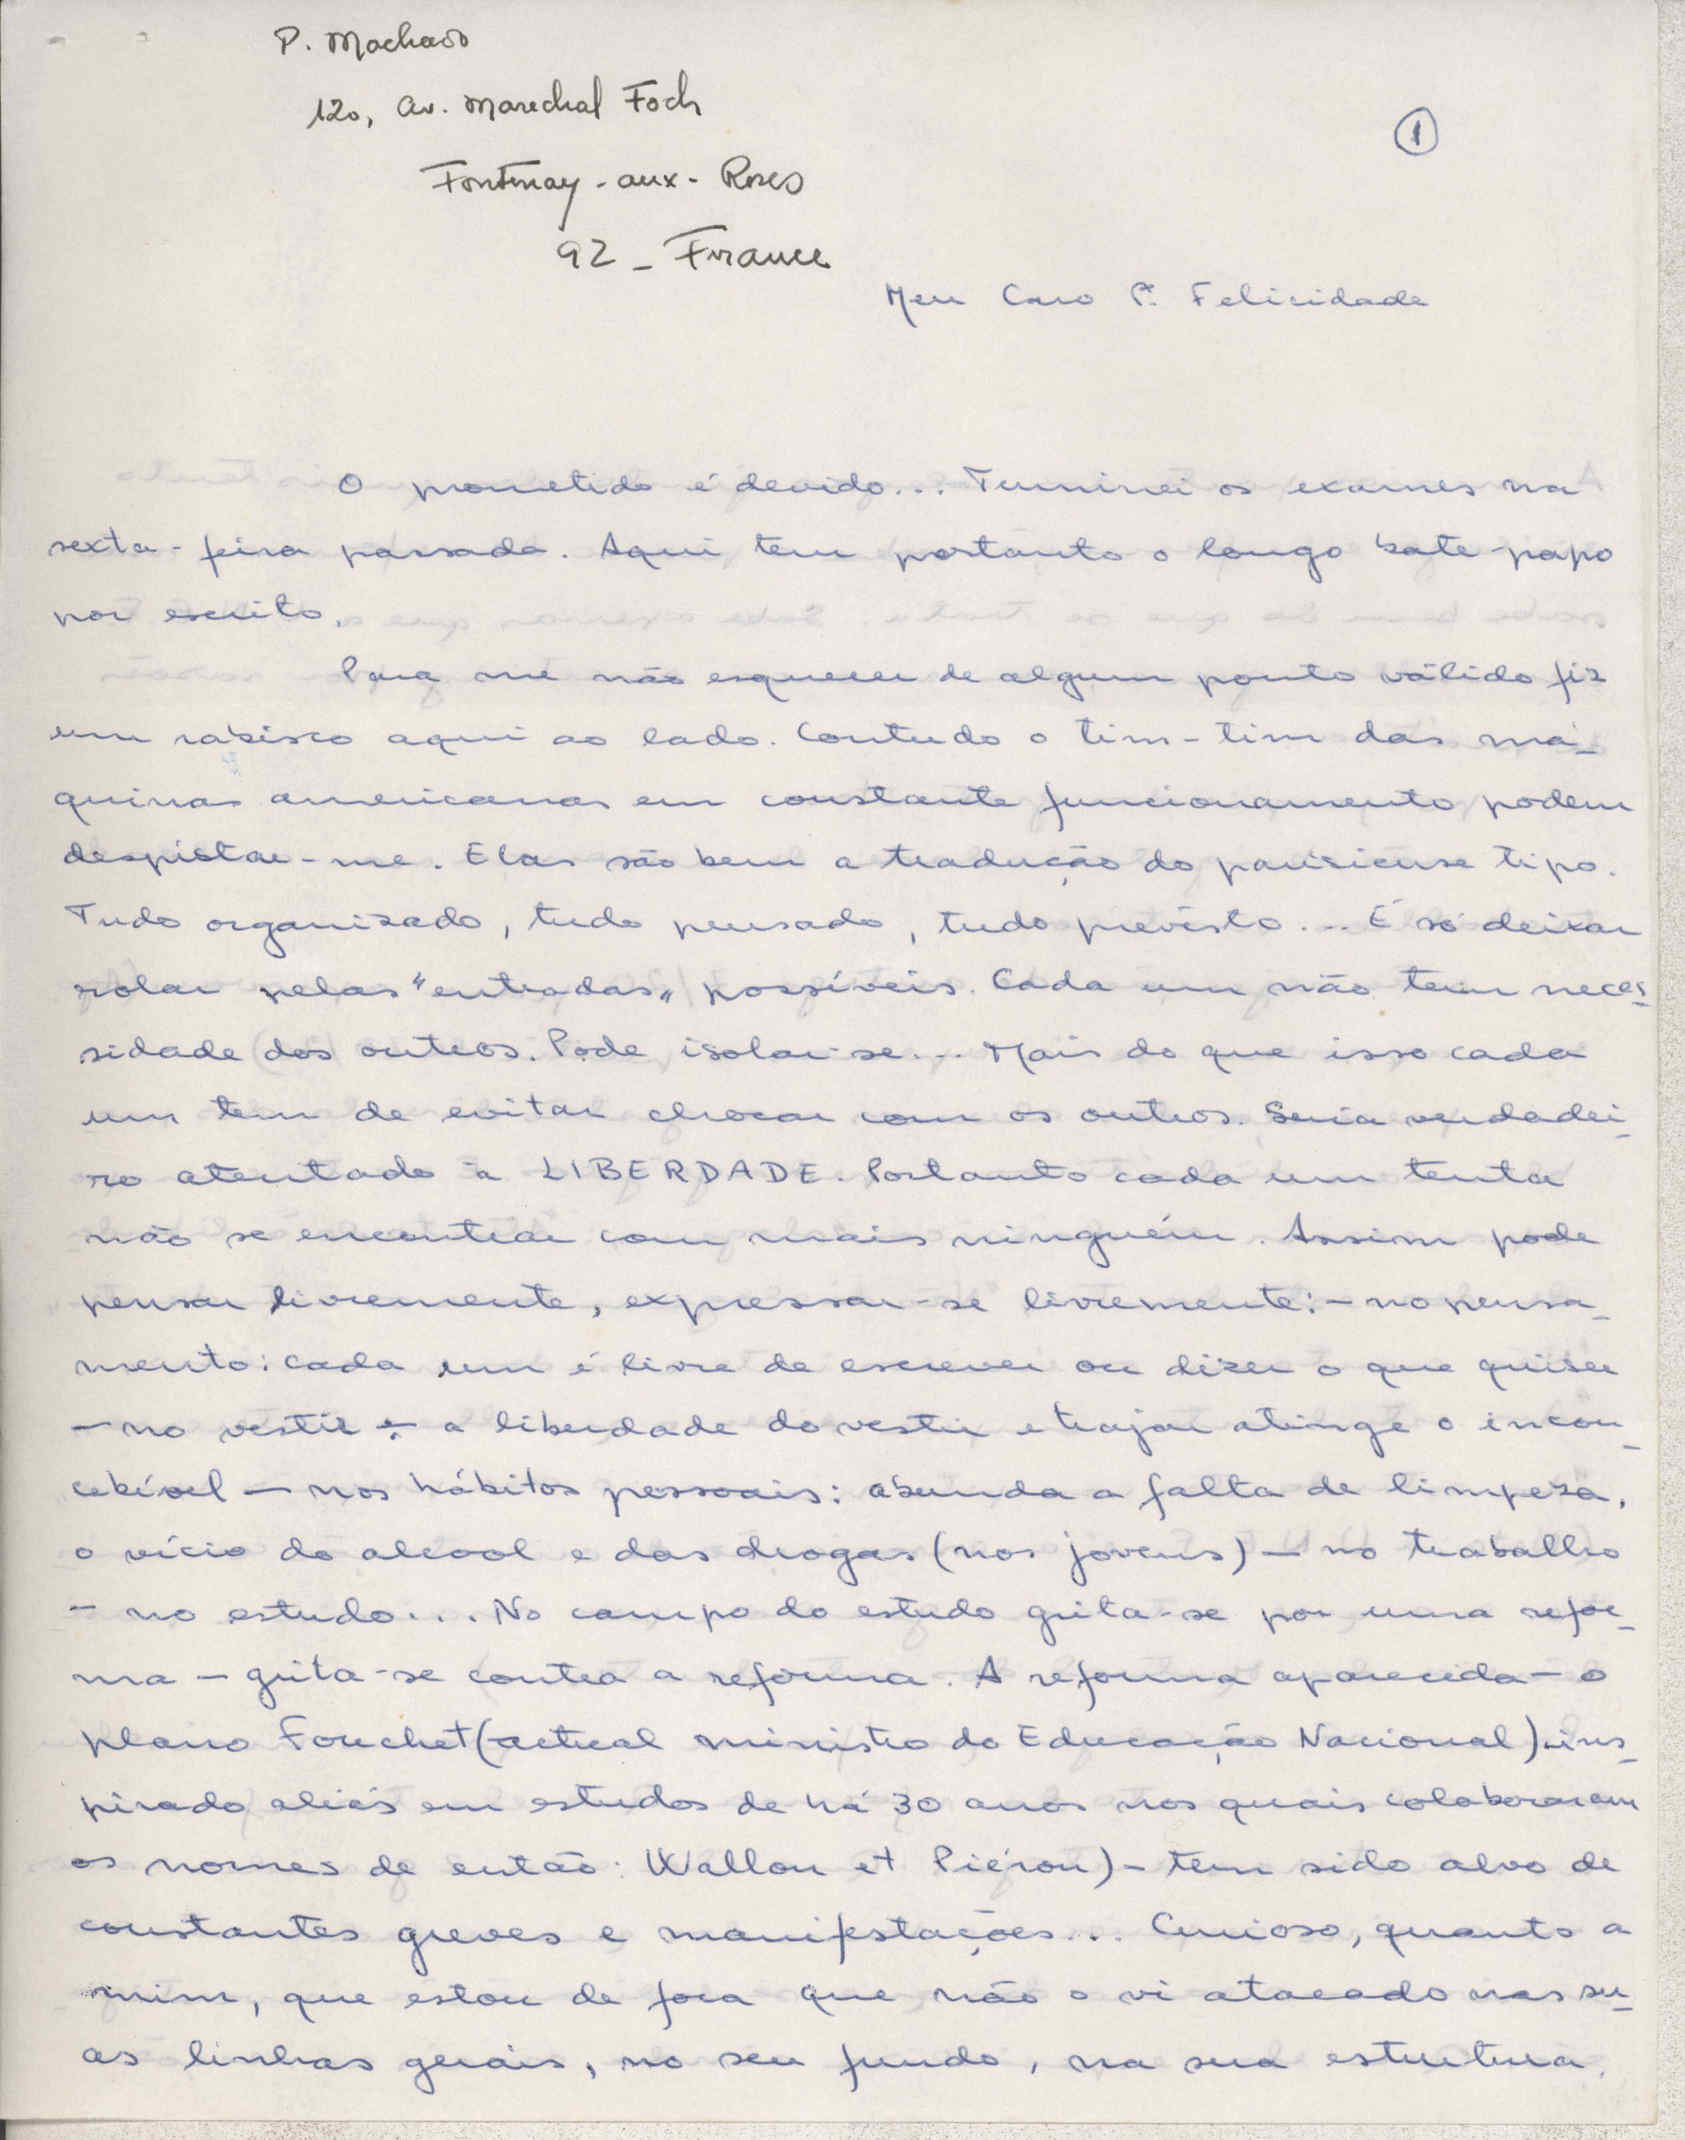 P. Machado
120, Av. Marechal Foch
①
Fontenay-aux-Roses
92 - France
Meu Caro P.e Felicidade
O prometido é devido... Terminei os exames na
sexta-feira passada. Aqui tem portanto o longo bate-papo
por escrito.
Para me não esquecer de algum ponto válido fiz
um rabisco aqui ao lado. Contudo o tim-tim das má-
quinas americanas em constante funcionamento podem
despistar-me. Elas são bem a tradução do parisiense tipo.
Tudo organizado, tudo pensado, tudo previsto... É só deixar
rolar pelas "entradas" possíveis. Cada um não tem neces-
sidade dos outros. Pode isolar-se... Mais do que isso cada
um tem de evitar chocar com os outros. Seria verdadei-
ro atentado à LIBERDADE. Portanto cada um tenta
não se encontrar com mais ninguém. Assim pode
pensar livremente, expressar-se livremente: - no pensa-
mento: cada um é livre de escrever ou dizer o que quiser
- no vestir - a liberdade do vestir e trajar atinge o incon-
cebível - nos hábitos pessoais: abunda a falta de limpeza,
o vício do alcool e das drogas (nos jovens) - no trabalho
- no estudo... No campo do estudo grita-se por uma refor-
ma - grita-se contra a reforma. A reforma aparecida - o
plano Fouchet (actual ministro do Educação Nacional) - ins-
pirado aliás em estudos de há 30 anos nos quais colaboraram
os nomes de então: Wallon et Piéron) - tem sido alvo de
constantes greves e manifestações... Curioso, quanto a
mim, que estou de fora que não o vi atacado nas su-
as linhas gerais, no seu fundo, na sua estrutura.